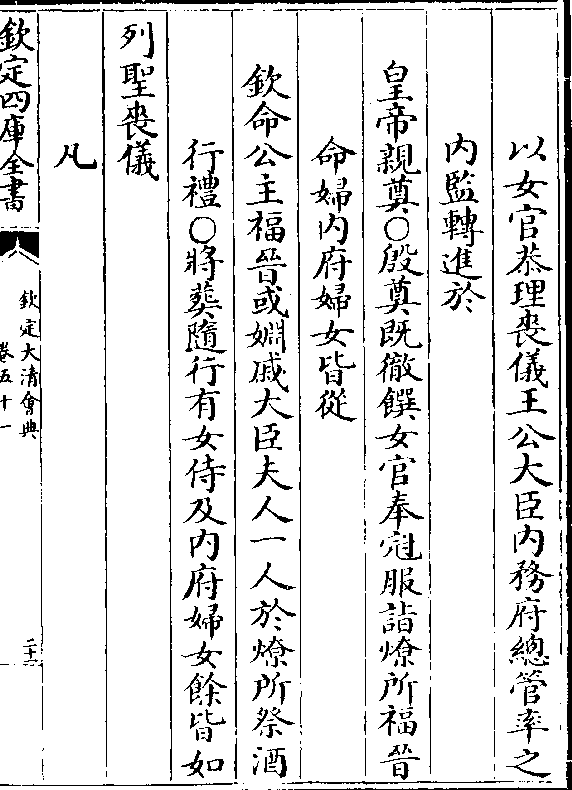 以女官恭理喪儀王公大臣内務府總管率之
内監轉進於
皇帝親奠○殷奠既徹饌女官奉冠服詣燎所福晉
命婦内府婦女皆從
欽命公主福晉或婣戚大臣夫人一人於燎所祭酒
行禮○將葬隨行有女侍及内府婦女餘皆如
列聖喪儀
凡
欽定四庫全書
欽定大清會典
卷五十一
二十三